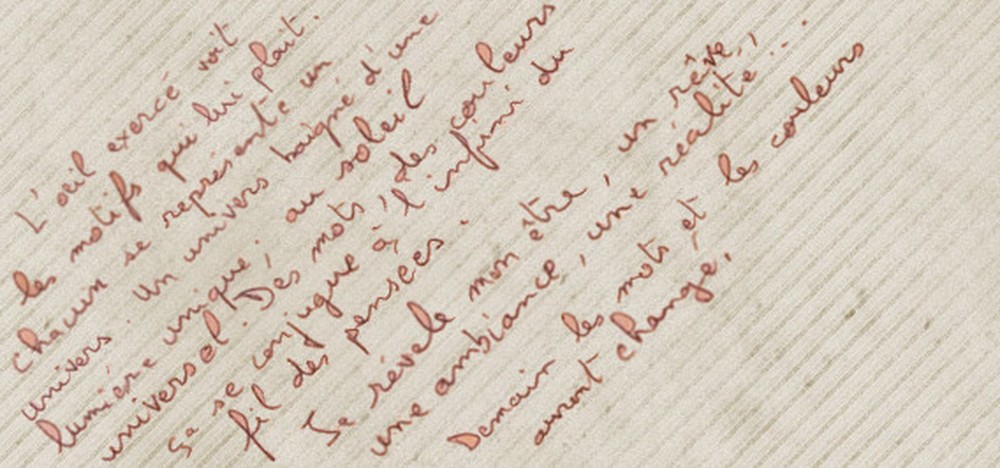 L'oeil exercé voit
les motifs qui lui plait.
Chacun se représente un
univers. Un univers baigné d'une
lumière unique, au soleil
universel. Des mots, des couleurs
ça se conjugue à l'infini du
fil des pensées.
Je révèle mon être, un rêve,
une ambiance, une réalité...
Demain les mots et les couleurs
auront changé.